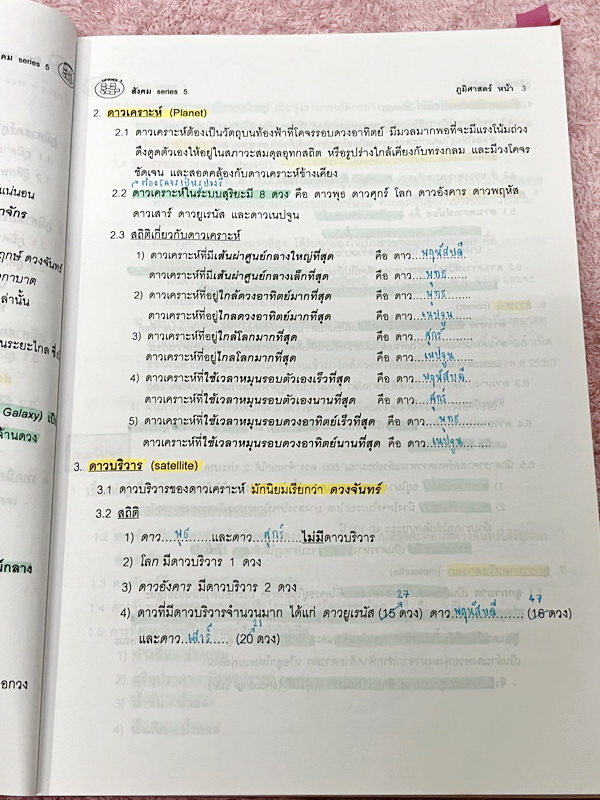 คม series 5
แน่นอน
าจักร
ฤกษ์ ดวงจันทร์
กาบาต
ล่านั้น
นระยะไกล ซึ่ง
Galaxy) เป็
จ้านดวง
ม์กลาง
อกวง
สังคม series 5 ภูมิศาสตร์ หน้า 3
2. ดาวเคราะห์ (Planet)
2.1 ดาวเคราะห์ต้องเป็นวัตถุบนท้องฟ้าที่โคจรรอบดวงอาทิตย์ มีมวลมากพอที่จะมีแรงโน้มถ่วง
ดึงดูดตัวเองให้อยู่ในสภาวะสมดุลอุทกสถิต หรือรูปร่างใกล้เคียงกับทรงกลม และมีวงโคจร
ชัดเจน และสอดคล้องกับดาวเคราะห์ข้างเคียง
ต้องโคจรเป็นรูปวงรี
2.2 ดาวเคราะห์ในระบบสุริยะมี 8 ดวง คือ ดาวพุธ ดาวศุกร์ โลก ดาวอังคาร ดาวพฤหัส
ดาวเสาร์ ดาวยูเรนัส และดาวเนปจูน
2.3 สถิติเกี่ยวกับดาวเคราะห์
1) ดาวเคราะห์ที่มีเส้นผ่าศูนย์กลางใหญ่ที่สุด คือ ดาว...พฤหัสบดี
ดาวเคราะห์ที่มีเส้นผ่าศูนย์กลางเล็กที่สุด คือ ดาว...พุทธ......
2) ดาวเคราะห์ที่อยู่ใกล้ดวงอาทิตย์มากที่สุด คือ ดาว...พุทธ......
ดาวเคราะห์ที่อยู่ไกลดวงอาทิตย์มากที่สุด คือ ดาว...เนปจูน.....
3) ดาวเคราะห์ที่ใกล้โลกมากที่สุด คือ ดาว...ศุกร์......
ดาวเคราะห์ที่อยู่ไกลโลกมากที่สุด คือ ดาว...เนปจูน.....
4) ดาวเคราะห์ที่ใช้เวลาหมุนรอบตัวเองเร็วที่สุด คือ ดาว...พฤหัสบดี..
ดาวเคราะห์ที่ใช้เวลาหมุนรอบตัวเองนานที่สุด คือ ดาว....ศุกร์......
5) ดาวเคราะห์ที่ใช้เวลาหมุนรอบดวงอาทิตย์เร็วที่สุด คือ ดาว......พุทธ.....
ดาวเคราะห์ที่ใช้เวลาหมุนรอบดวงอาทิตย์นานที่สุด คือ ดาว....เนปจูน......
3. ดาวบริวาร (satellite)
3.1 ดาวบริวารของดาวเคราะห์ มักนิยมเรียกว่า ดวงจันทร์
3.2 สถิติ
1) ดาว...พุธ......และดาว....ศุกร์....ไม่มีดาวบริวาร
2) โลก มีดาวบริวาร 1 ดวง
3) ดาวอังคาร มีดาวบริวาร 2 ดวง
27 47
4) ดาวที่มีดาวบริวารจำนวนมาก ได้แก่ ดาวยูเรนัส (15 ดวง) ดาว..พฤหัสบดี........(16 ดวง)
21
และดาว...เสาร์..... (20 ดวง)